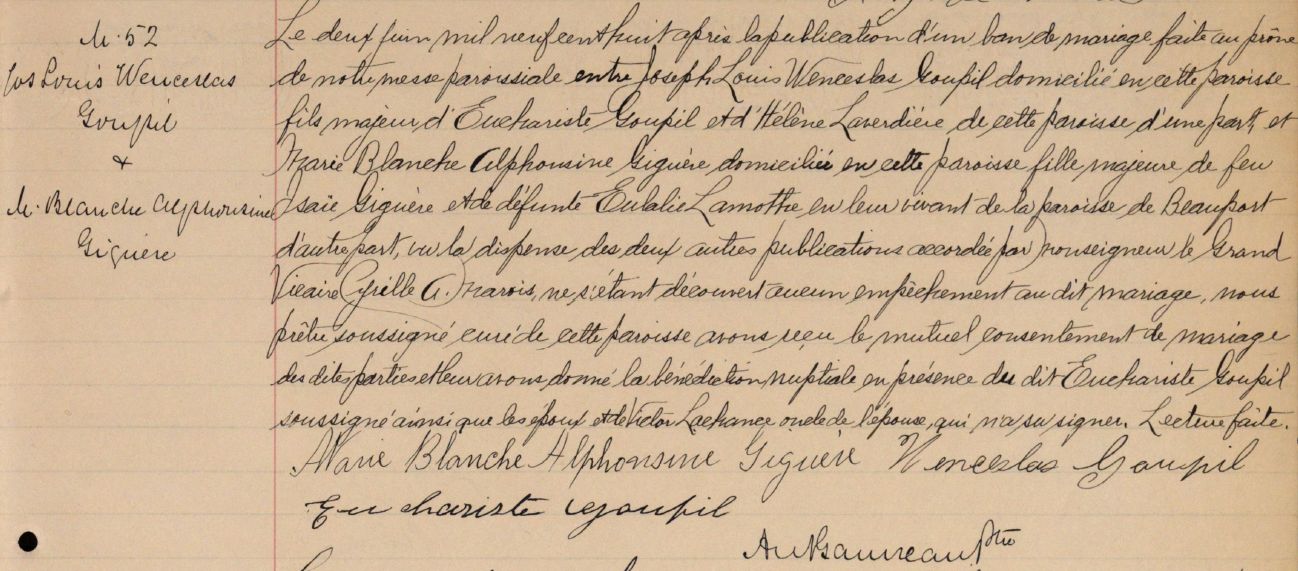 M. 52
Jos Louis Wenceslas
Goupil
&
M. Blanche Alphonsine
Giguère
Le deux juin mil neuf cent huit après la publication d'un ban de mariage faite au prône
de notre messe paroissiale entre Joseph Louis Wenceslas Goupil domicilié en cette paroisse
fils majeur d'Euchariste Goupil et d'Hélène Laverdière de cette paroisse d'une part, et
Marie Blanche Alphonsine Giguère domiciliée en cette paroisse fille majeure de feu
Isaïe Giguère et de défunte Eulalie Lamothe en leur vivant de la paroisse de Beauport
d'autre part, vu la dispense des deux autres publications accordée par Monseigneur le Grand
Vicaire Cyrille A. Marois, ne s'étant découvert aucun empêchement au dit mariage, nous
prêtre soussigné curé de cette paroisse avons reçu le mutuel consentement de mariage
des dites parties et leur avons donné la bénédiction nuptiale en présence du dit Euchariste Goupil
soussigné ainsi que les époux et de Victor Lachance oncle de l'épouse, qui n'a su signer. Lecture faite.
Marie Blanche Alphonsine Giguère Wenceslas Goupil
Euchariste Goupil
Ptre